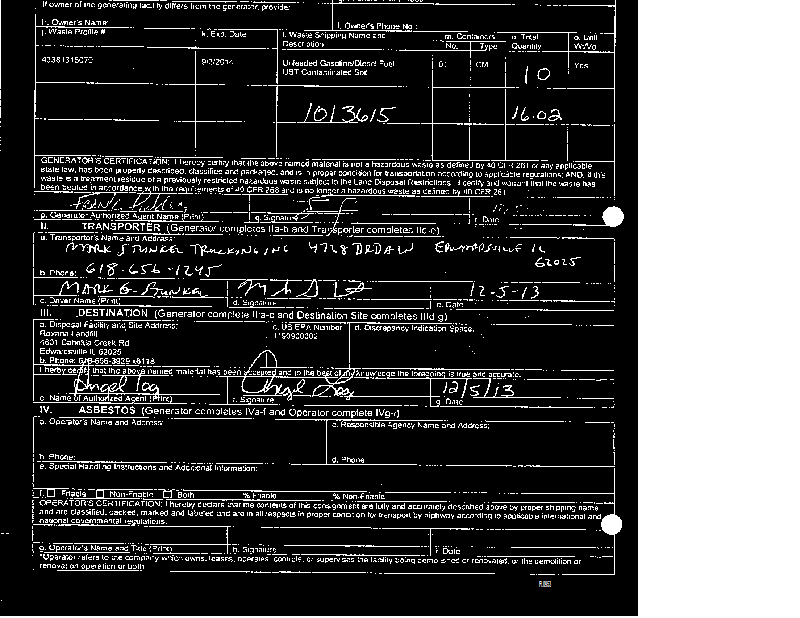 If owner of the generating facility differs from the generator, provide:
h. Owner's Name: i. Owner's Phone No.:
j. Waste Profile # k. Exp. Date l. Waste Shipping Name and Description m. Containers No. Type n. Total Quantity o. Unit Wt/Vol
9/3/2014 Unleaded Gasoline/Diesel Fuel UST Contaminated Soil CM 10 Yes
1013615 16.02
GENERATOR'S CERTIFICATION: I hereby certify that the above named material is not a hazardous waste as defined by 40 CFR 261 or any applicable
state law, has been properly described, classified and packaged, and is in proper condition for transportation according to applicable regulations; AND, if this
waste is a treatment residue of a previously restricted hazardous waste subject to the Land Disposal Restrictions, I certify and warrant that the waste has
been treated in accordance with the requirements of 40 CFR 268 and is no longer a hazardous waste as defined by 40 CFR 261
p. Generator Authorized Agent Name (Print) q. Signature r. Date
II. TRANSPORTER (Generator completes IIa-b and Transporter completes IIc-e)
a. Transporter's Name and Address:
MARK BUNKEL TRUCKING INC 4728 DRDA LN EDWARDSVILLE IL
62025
b. Phone: 618-656-1245
MARK G. BUNKEL 12-5-13
c. Driver Name (Print) d. Signature e. Date
III. DESTINATION (Generator complete IIIa-c and Destination Site completes IIId-g)
a. Disposal Facility and Site Address: c. US EPA Number d. Discrepancy Indication Space:
Roxana Landfill
4601 Cahokia Creek Rd
Edwardsville IL 62025
b. Phone:
I hereby certify that the above named material has been accepted and to the best of my knowledge the foregoing is true and accurate.
Angel Log Angel Log 12/5/13
e. Name of Authorized Agent (Print) f. Signature g. Date
IV. ASBESTOS (Generator completes IVa-f and Operator complete IVg-i)
a. Operator's Name and Address: c. Responsible Agency Name and Address:
b. Phone: d. Phone
e. Special Handling Instructions and Additional Information:
f. Friable Non-Friable Both % Friable % Non-Friable
OPERATOR'S CERTIFICATION: I hereby declare that the contents of this consignment are fully and accurately described above by proper shipping name
and are classified, packed, marked and labeled and are in all respects in proper condition for transport by highway according to applicable international and
national governmental regulations.
g. Operator's Name and Title (Print) h. Signature i. Date
*Operator refers to the company which owns, leases, operates, controls, or supervises the facility being demolished or renovated, or the demolition or
renovation operation or both